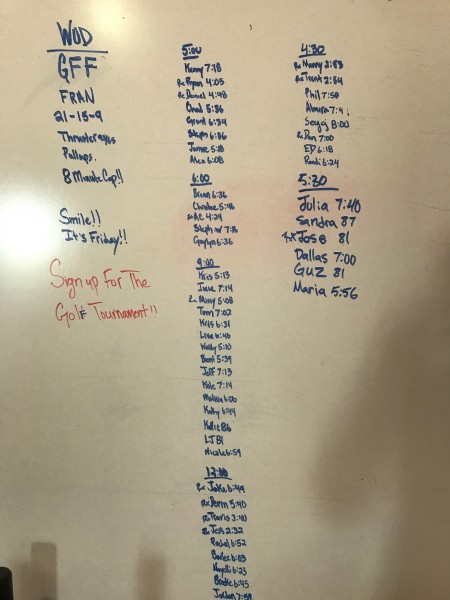 WOD
GFF
FRAN
21-15-9
Thruster 95/65
Pullups.
8 Minute Cap!!
Smile!!
It's Friday!!
Sign up For The
Golf Tournament!!
5:00
Kenny 7:18
Rx Ryan 4:05
Rx Daniel 4:48
Chad 5:36
Grant 6:34
Steph 6:36
James 5:10
Alex 6:08
6:00
Brian 6:36
Christine 5:46
Rx AC 4:24
Steph W 7:16
Graylyn 6:36
9:00
Kris 5:13
June 7:14
Rx Missy 5:08
Tom 7:02
Kris 6:31
Lisa 6:46
Wally 5:10
Brent 5:39
Jeff 7:13
Kale 7:14
Melissa 6:00
Kathy 6:44
Kellie 86
LJ 81
Nicole 6:59
12:00
Rx Jake 6:49
Rx Devin 5:40
Rx Travis 3:40
Rx Jess 2:32
Rachel 6:52
6:03
6:23
6:45
Jordan 7:58
4:30
Rx Manny 2:83
Rx Trent 2:54
Phil 7:50
7:41
Sergej 8:00
Rx Dan 7:00
ED 6:18
Randi 6:24
5:30
Julia 7:40
Sandra 87
Rx Jose 81
Dallas 7:00
Guz 81
Maria 5:56